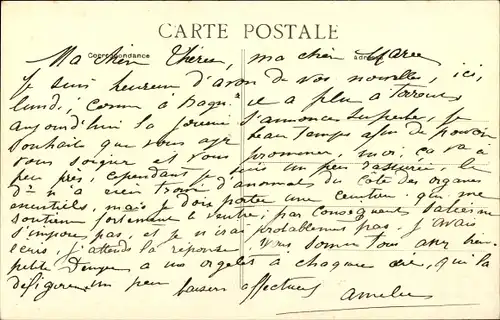 CARTE POSTALE
Correspondance
Ma chère Thérèse, ma chère Marie
Je suis heureux d'avoir de vos nouvelles, ici,
lundi, comme à Bagn. il a plu à torrents
aujourd'hui la journée s'annonce superbe, je
souhaite que vous ayez beau temps afin de pouvoir
vous soigner et vous promener, moi, ça va à
peu près, cependant je suis un peu rassurée le
Dr n'a rien trouvé d'anormal du côté des organes
essentiels, mais je dois porter une ceinture qui me
soutienne fortement le ventre, par conséquent
s'impose pas, et je n'irai probablement pas. J'avais
écris, j'attends la réponse. Vous donne tous avec
petite à vos à chaque qui la
défigure un peu baisers affectueux
Amélie